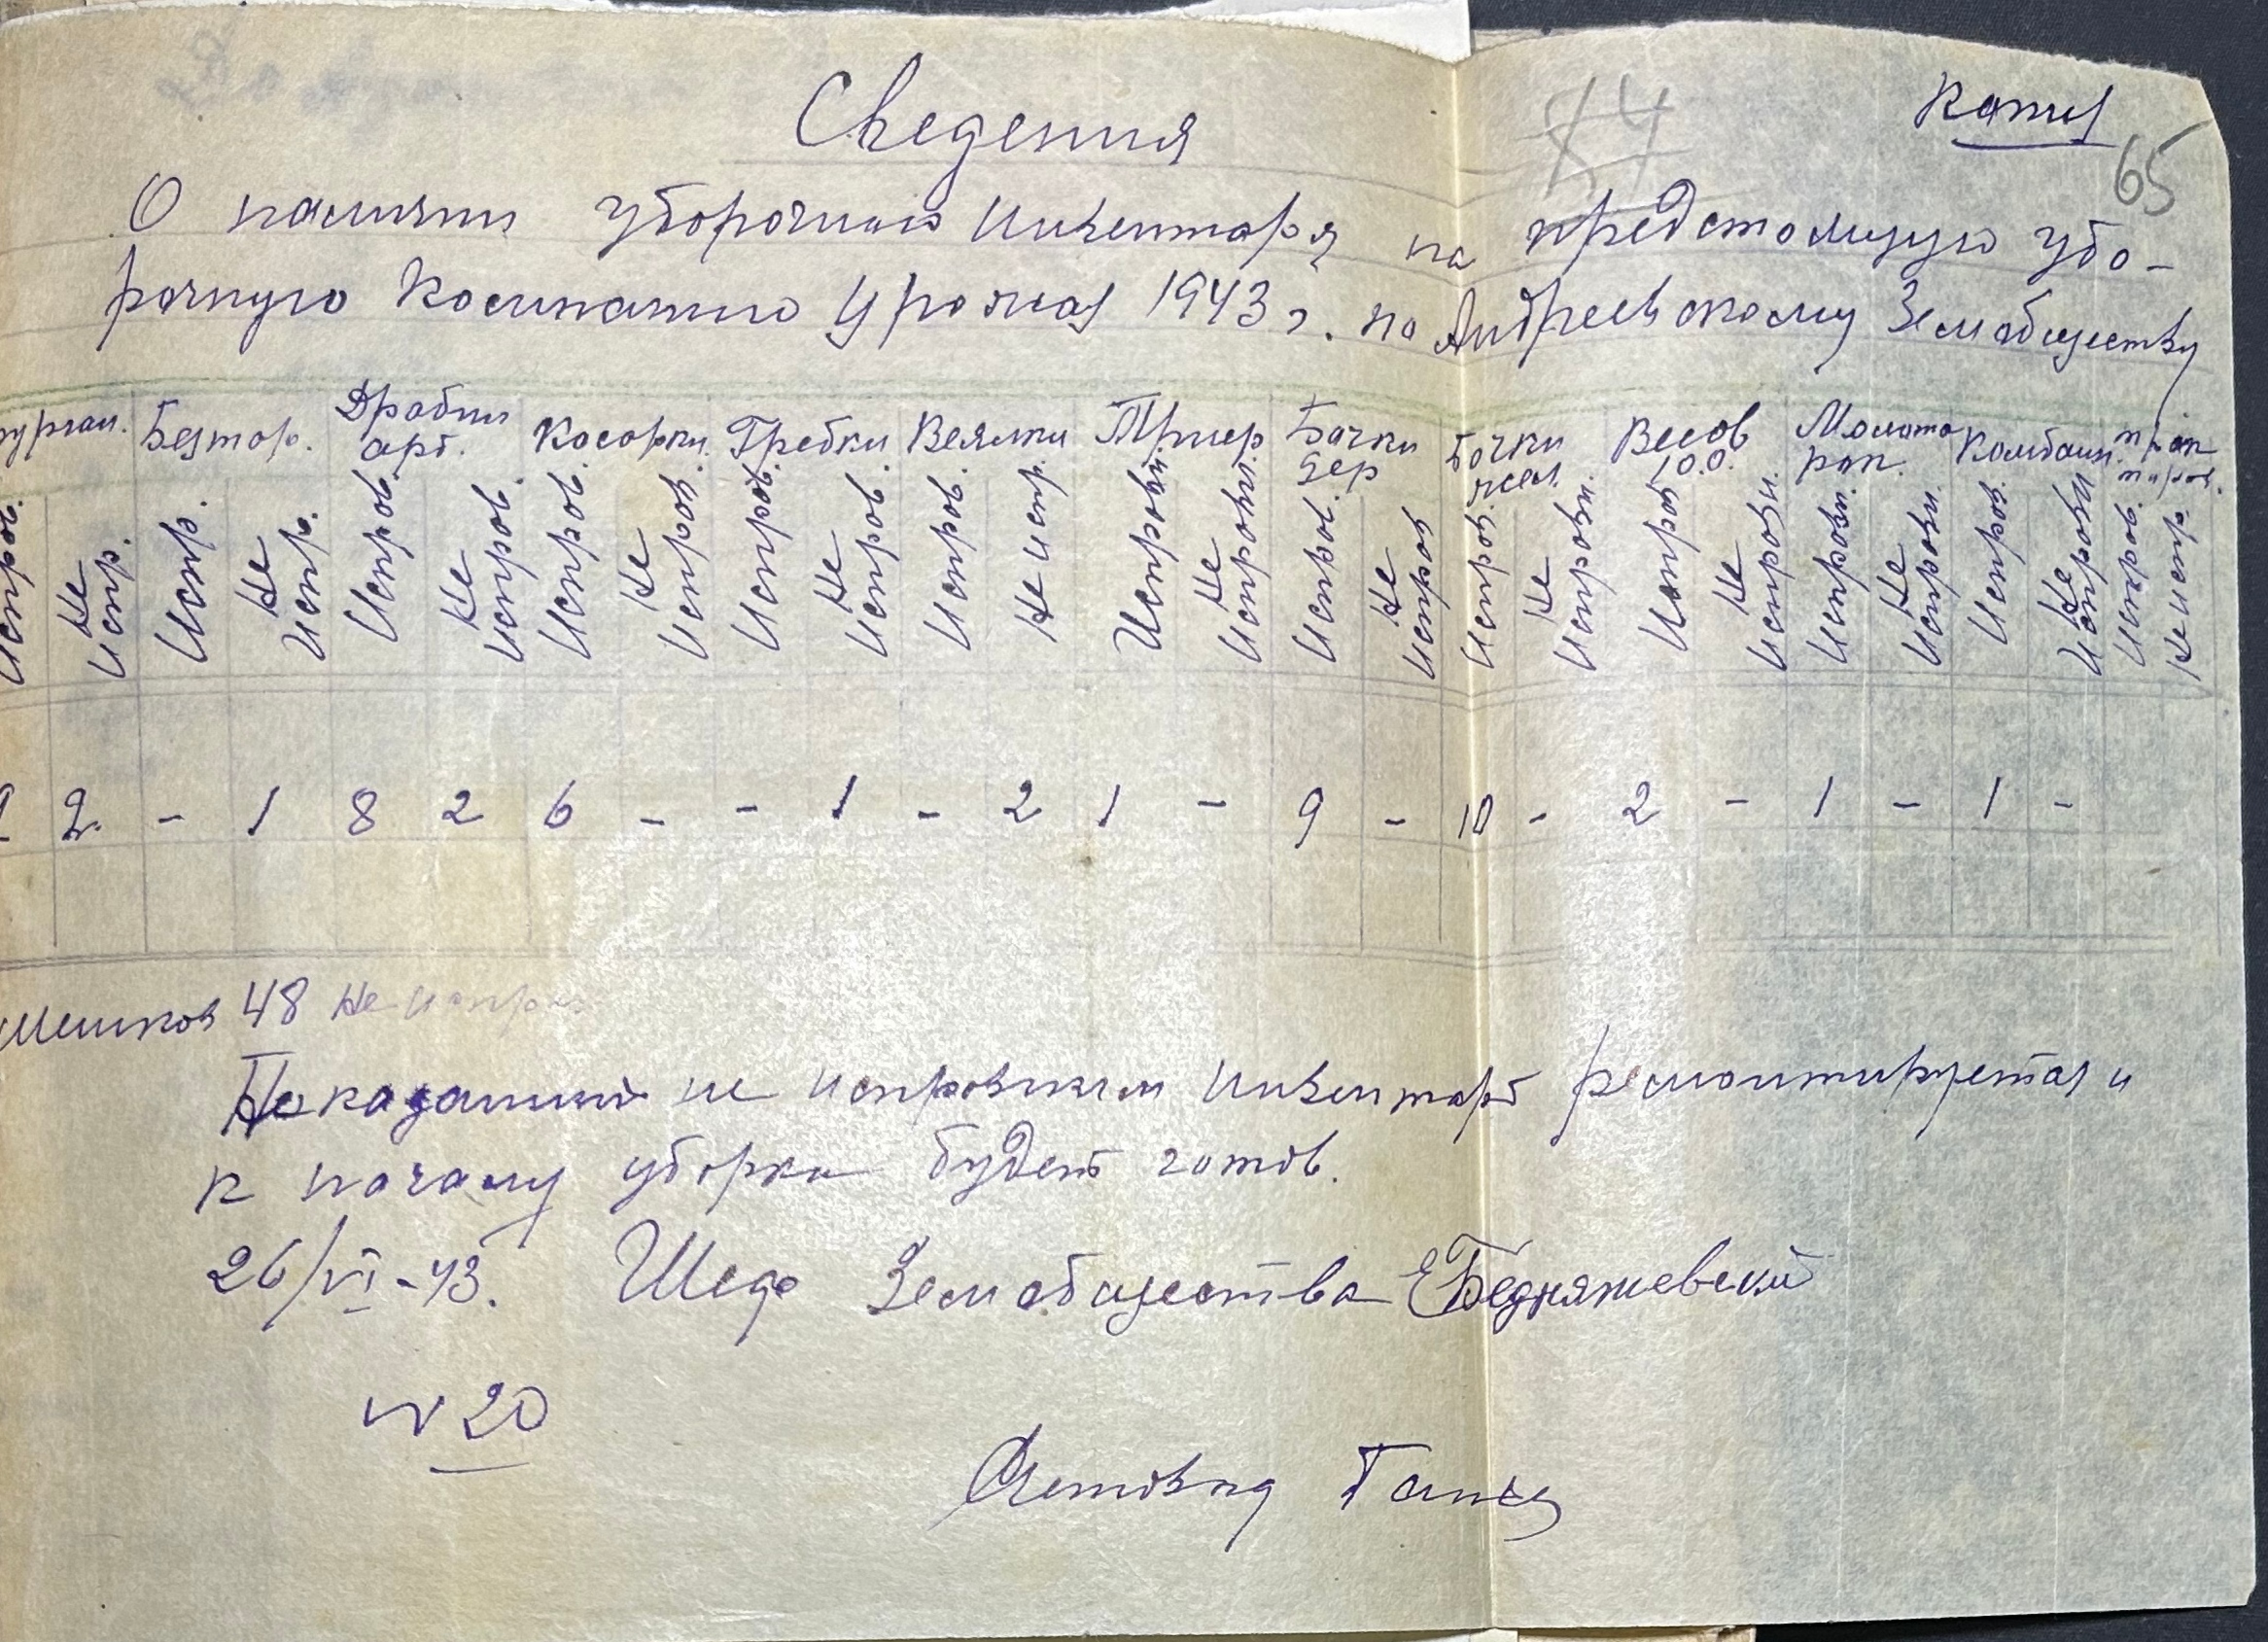 Копия
84
65
Сведения
О наличии уборочного инвентаря на предстоящую убо-
рочную компанию урожая 1943 г. по Андреевскому Земобществу
Безтар. Драбин арб. Косарки Гребки Веялки Триер Бочки дер Бочки жел. Весов 100. Молото рак. Комбайн.
Испров. Не испр. Испр. Не испр. Испров. Не испров. Испров. Не испров. Испров. Не испров. Испров. Не испр. Исправн. Не исправн. Испров. Не испров Испров. Не исправн. Испров Не исправн. Исправн. Не исправн. Испров. Не исправн Испров. Не испр.
2. - 1 8 2 6 - - 1 - 2 1 - 9 - 10 - 2 - 1 - 1 -
Мешков 48 не испров
Показанный не исправным инвентарь ремонтируется и
к началу уборки будет готов.
26/VI-43. Шеф Земобщества Бедняжевский
N 20
Счетовод